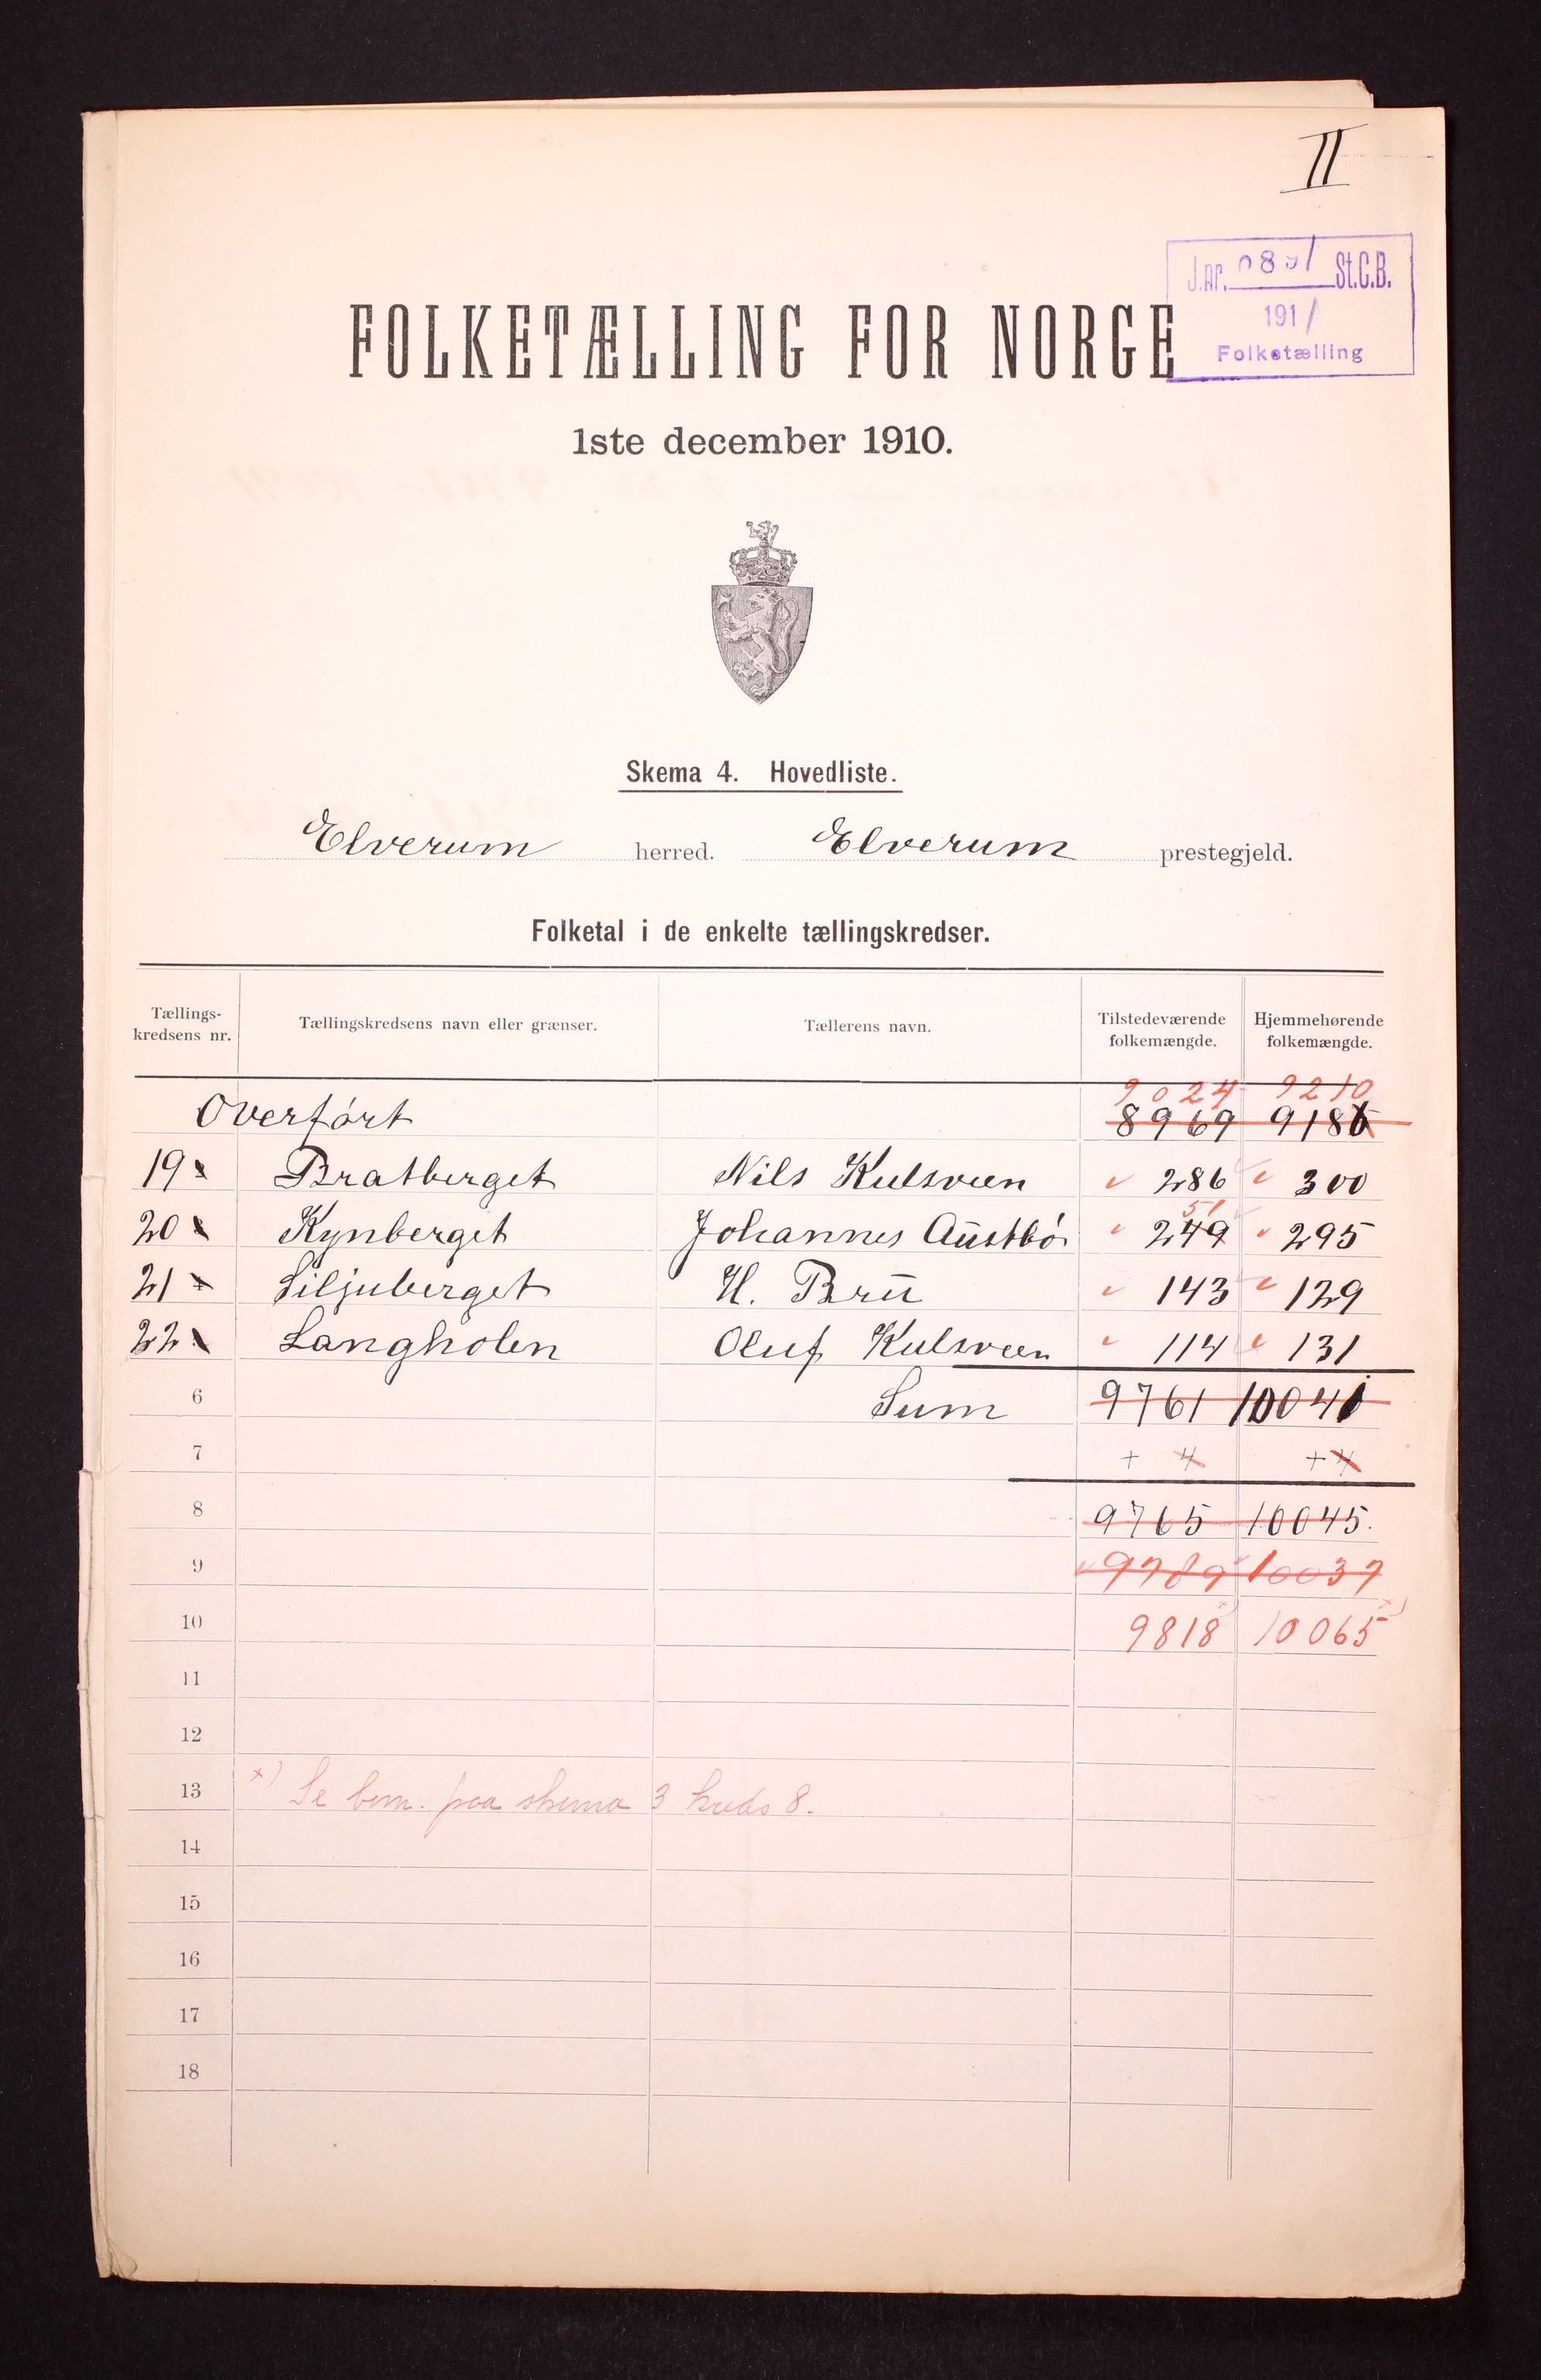 II
J.nr. 0891 St.C.B.
191/
Folketælling
FOLKETÆLLING FOR NORGE
1ste december 1910.
Skema 4. Hovedliste.
Elverum herred. Elverum prestegjeld.
Folketal i de enkelte tællingskredser.
Tællings-kredsens nr. Tællingskredsens navn eller grænser. Tællerens navn. Tilstedeværende folkemængde. Hjemmehørende folkemængde.
9024 9210
Overført 8969 9186
19 Bratberget Nils Kulsveen 286 300
51
20 Kynberget Johannes Austbø 249 295
21 Siljuberget H. Bru 143 129
22 Langholen Oluf Kulsveen 114 131
6 Sum 9761 10041
7 + 4 + 4
8 9765 10045.
9 9789 10037
10 9818 x) 10065 x)
11
12
13 x) Se bem. paa skema 3 kreds 8.
14
15
16
17
18